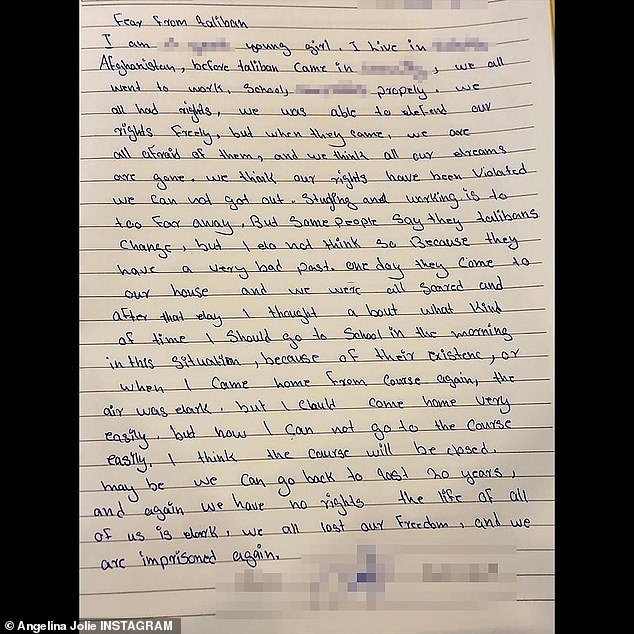 Fear From Taliban
I am young girl. I live in
Afghanistan, before taliban came in , we all
went to work, school, propely. we
all had rights, we was able to defend our
rights freely, but when they came, we are
all afraid of them, and we think all our dreams
are gone. we think our rights have been violated
we can not got out. Studying and working is to
too far away. But some people say they talibans
change, but I do not think so Because they
have a very bad past. one day they come to
our house and we were all scared and
after that day I thought a bout what kind
of time I should go to school in the morning
in this situation, because of their existenc, or
when I came home from course again, the
air was dark. but I could come home very
easily. but now I can not go to the course
easily. I think the course will be closed.
may be we can go back to last 20 years,
and again we have no rights the life of all
of us is dark, we all lost our freedom, and we
are imprisoned again.
© Angelina Jolie INSTAGRAM